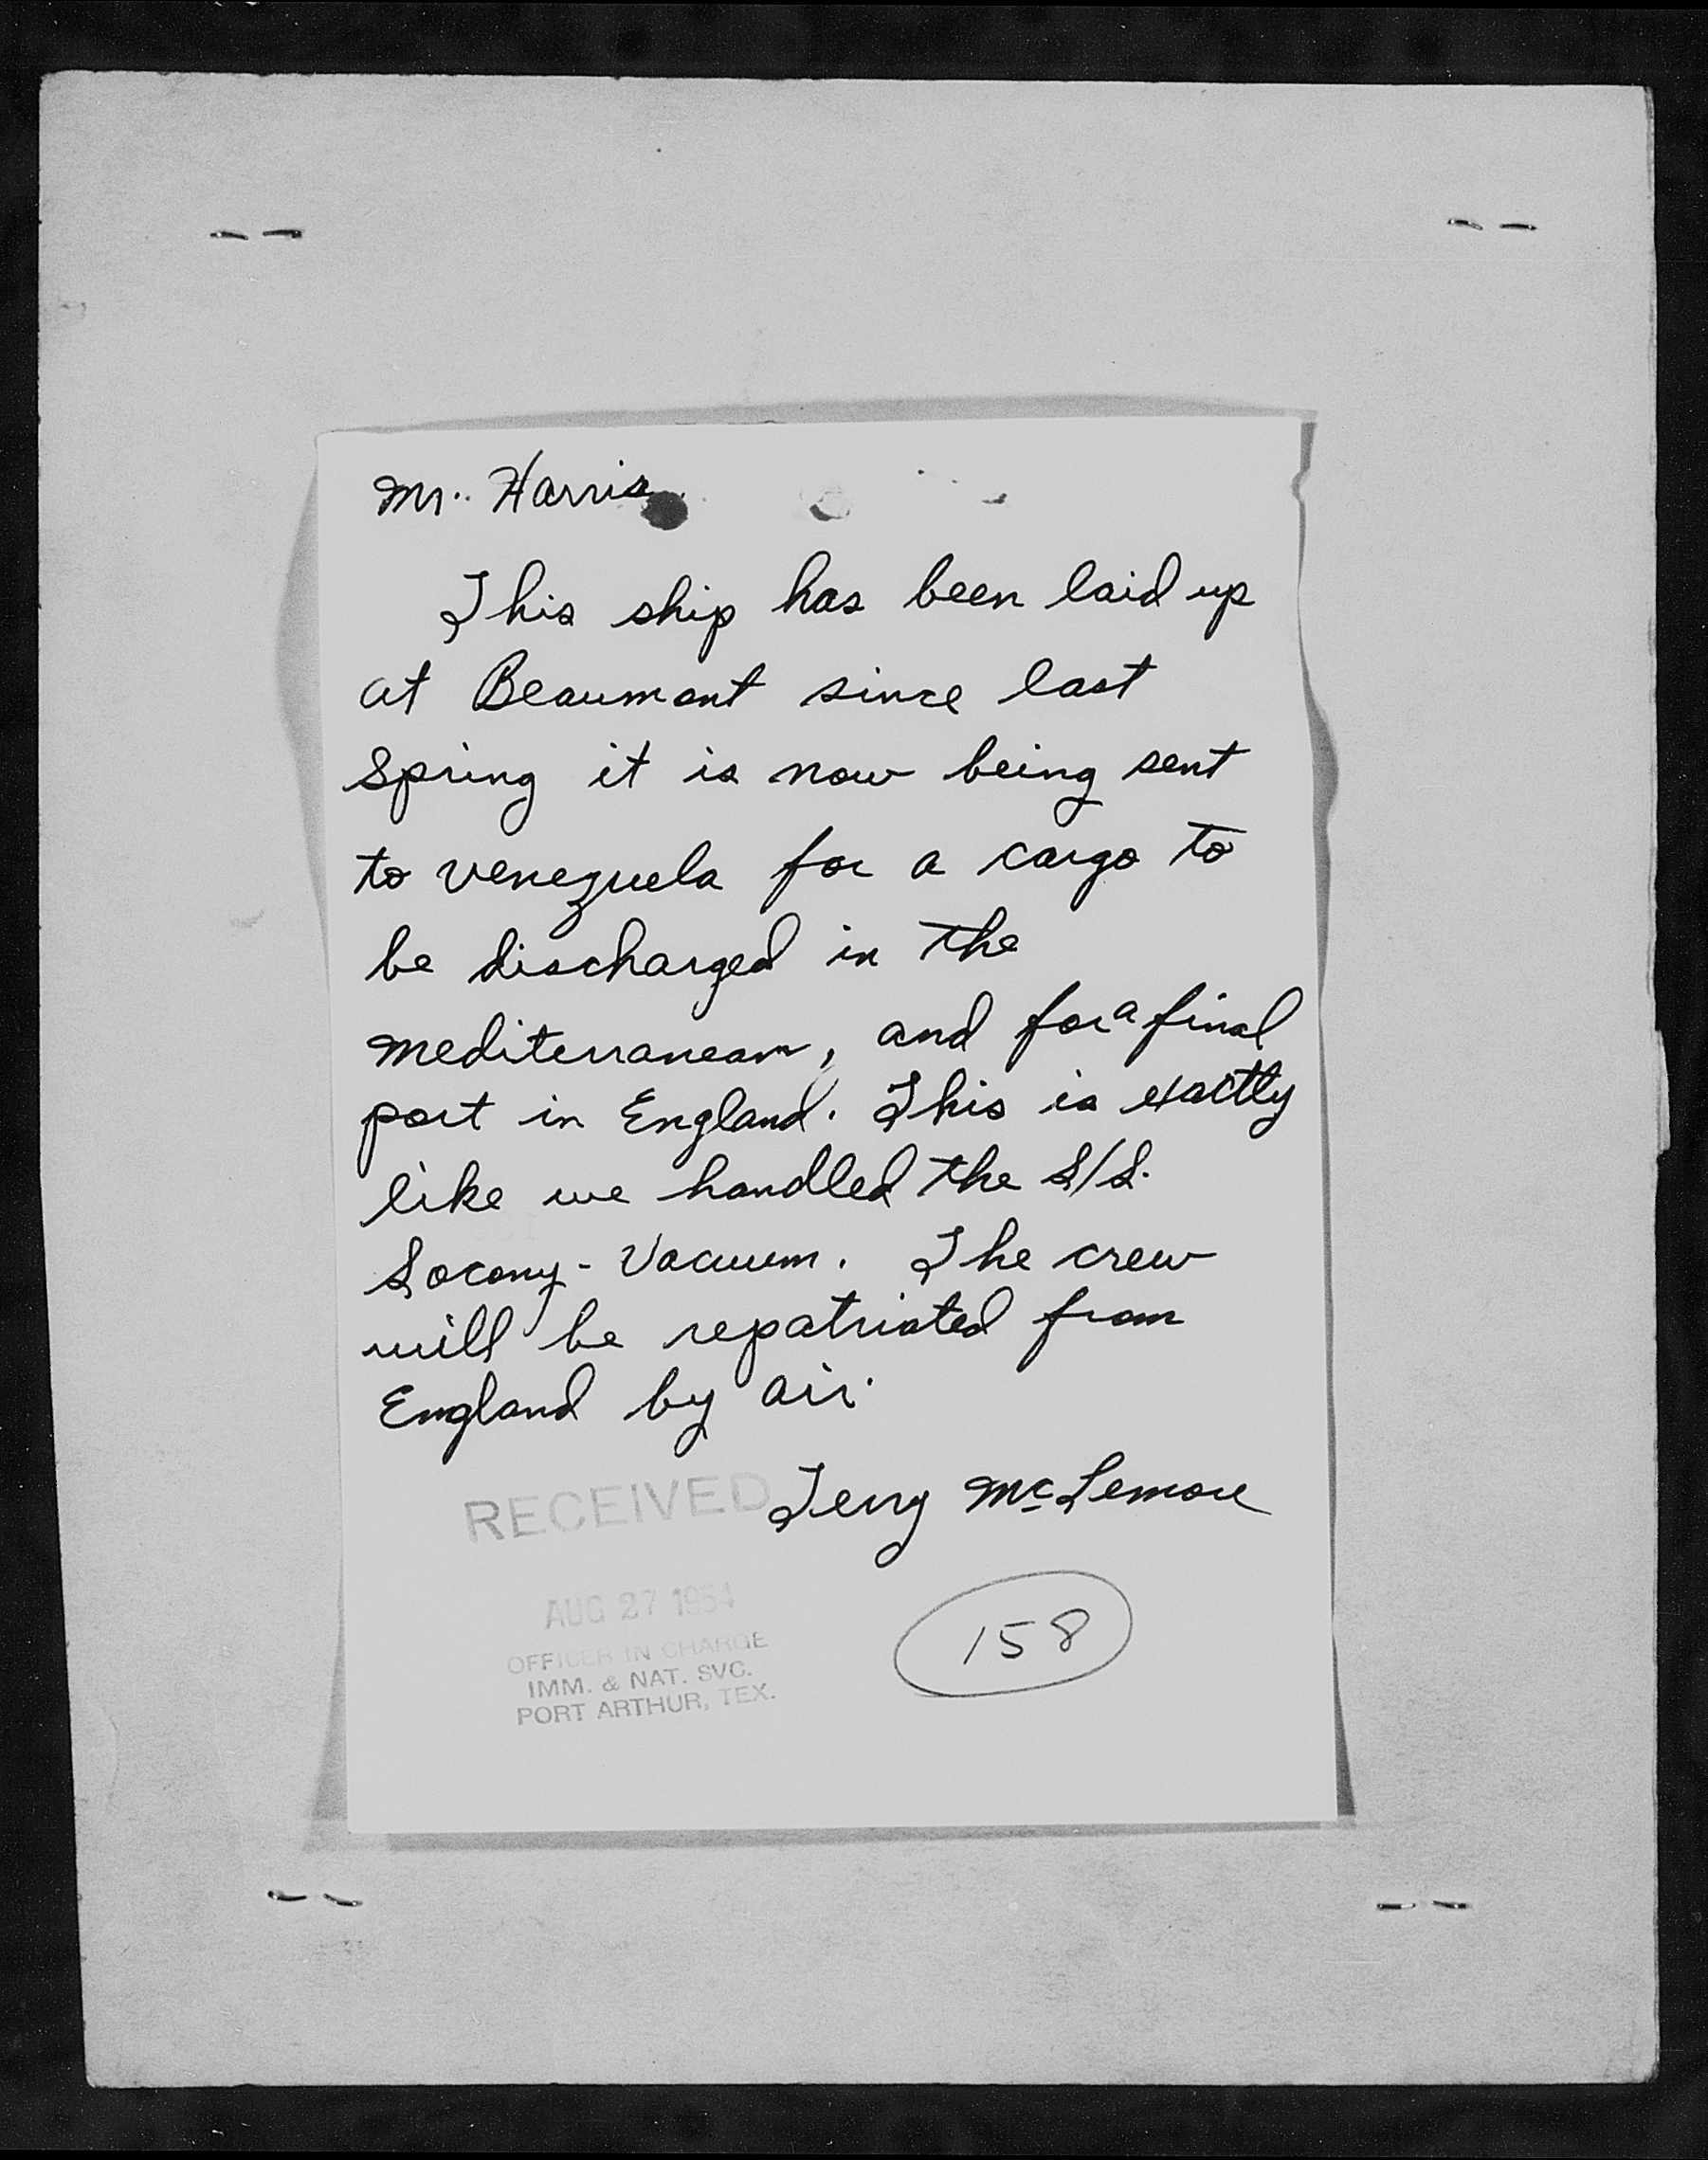 Mr. Harris
This ship has been laid up
at Beaumont since last
Spring it is now being sent
to Venezuela for a cargo to
be discharged in the
Mediterranean, and for a final
port in England. This is exactly
like we handled the S/S.
Socony-Vacuum. The crew
will be repatriated from
England by air.
Terry McLemore
RECEIVED
AUG 27 1954
OFFICER IN CHARGE
IMM. & NAT. SVC.
PORT ARTHUR, TEX.
158